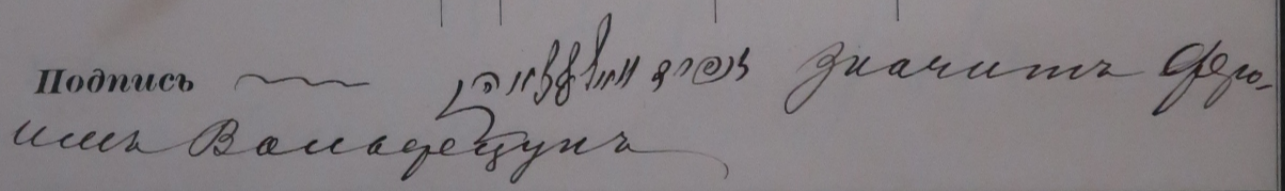 Подпись значитъ Фро-
имъ Вольфецунъ